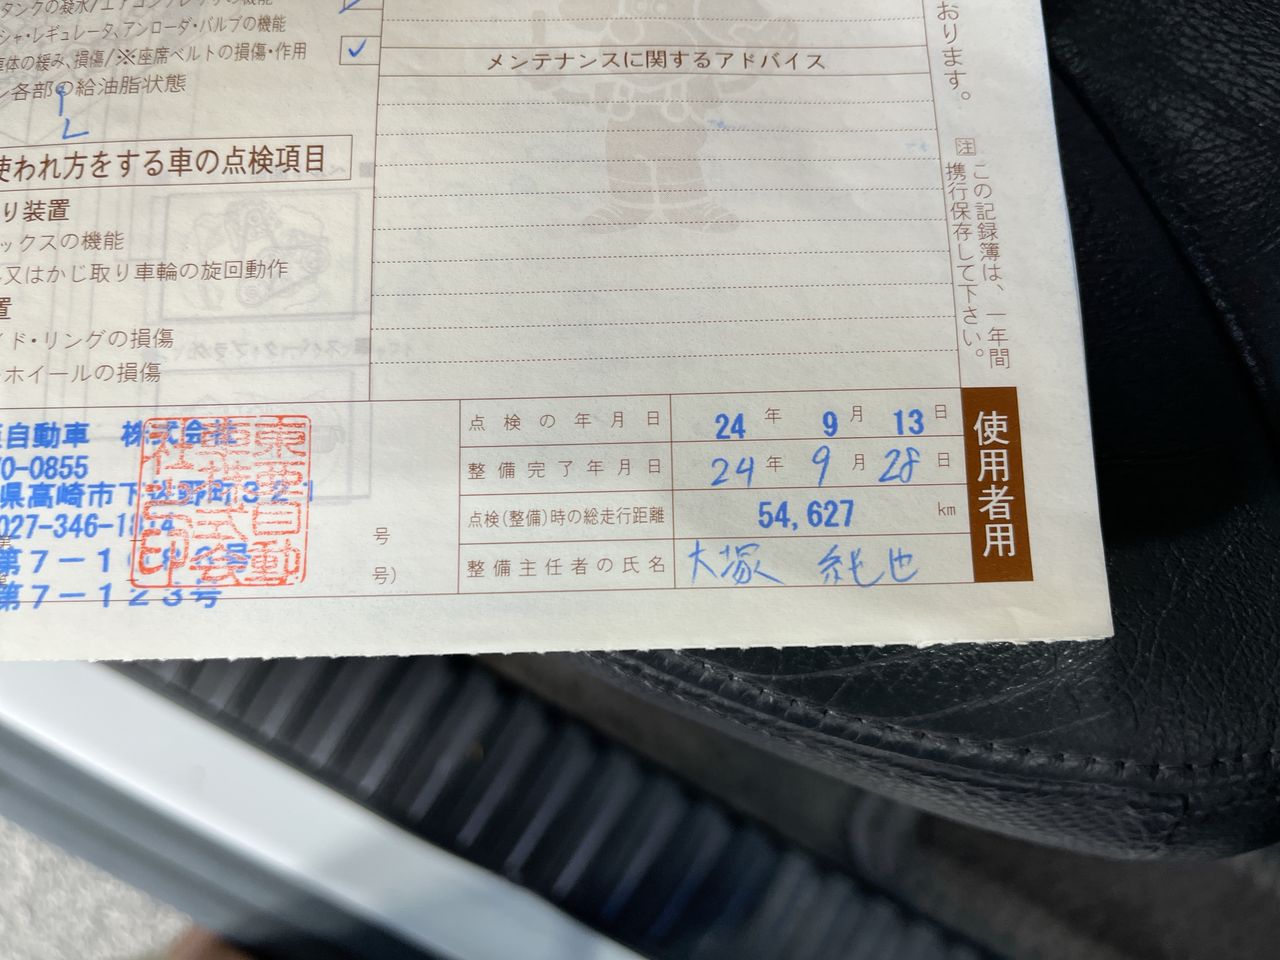 タンクの凝水/エアコンプレッサの機能
シャ・レギュレータ、アンローダ・バルブの機能
車体の緩み、損傷/※座席ベルトの損傷・作用
ン各部の給油脂状態
使われ方をする車の点検項目
り装置
ックスの機能
又はかじ取り車輪の旋回動作
置
イド・リングの損傷
ホイールの損傷
メンテナンスに関するアドバイス
おります。
注 この記録簿は、一年間
携行保存して下さい。
自動車 株式会社
0-0855
県高崎市下
027-346-1
第7-1
第7-123号
東亜自動車株式会社
号
号)
点検の年月日 24年 9月 13日
整備完了年月日 24年 9月 28日
点検(整備)時の総走行距離 54,627 km
整備主任者の氏名 大塚 純也
使用者用